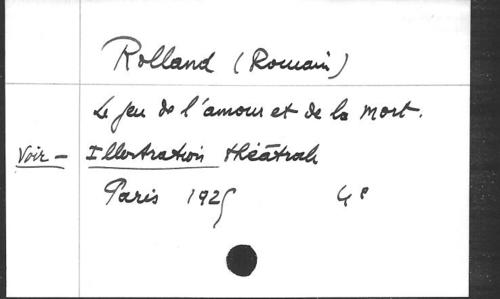 Rolland (Romain)
Le jeu de l'amour et de la mort.
Voir - Illustration théâtrale
Paris 1925 4°